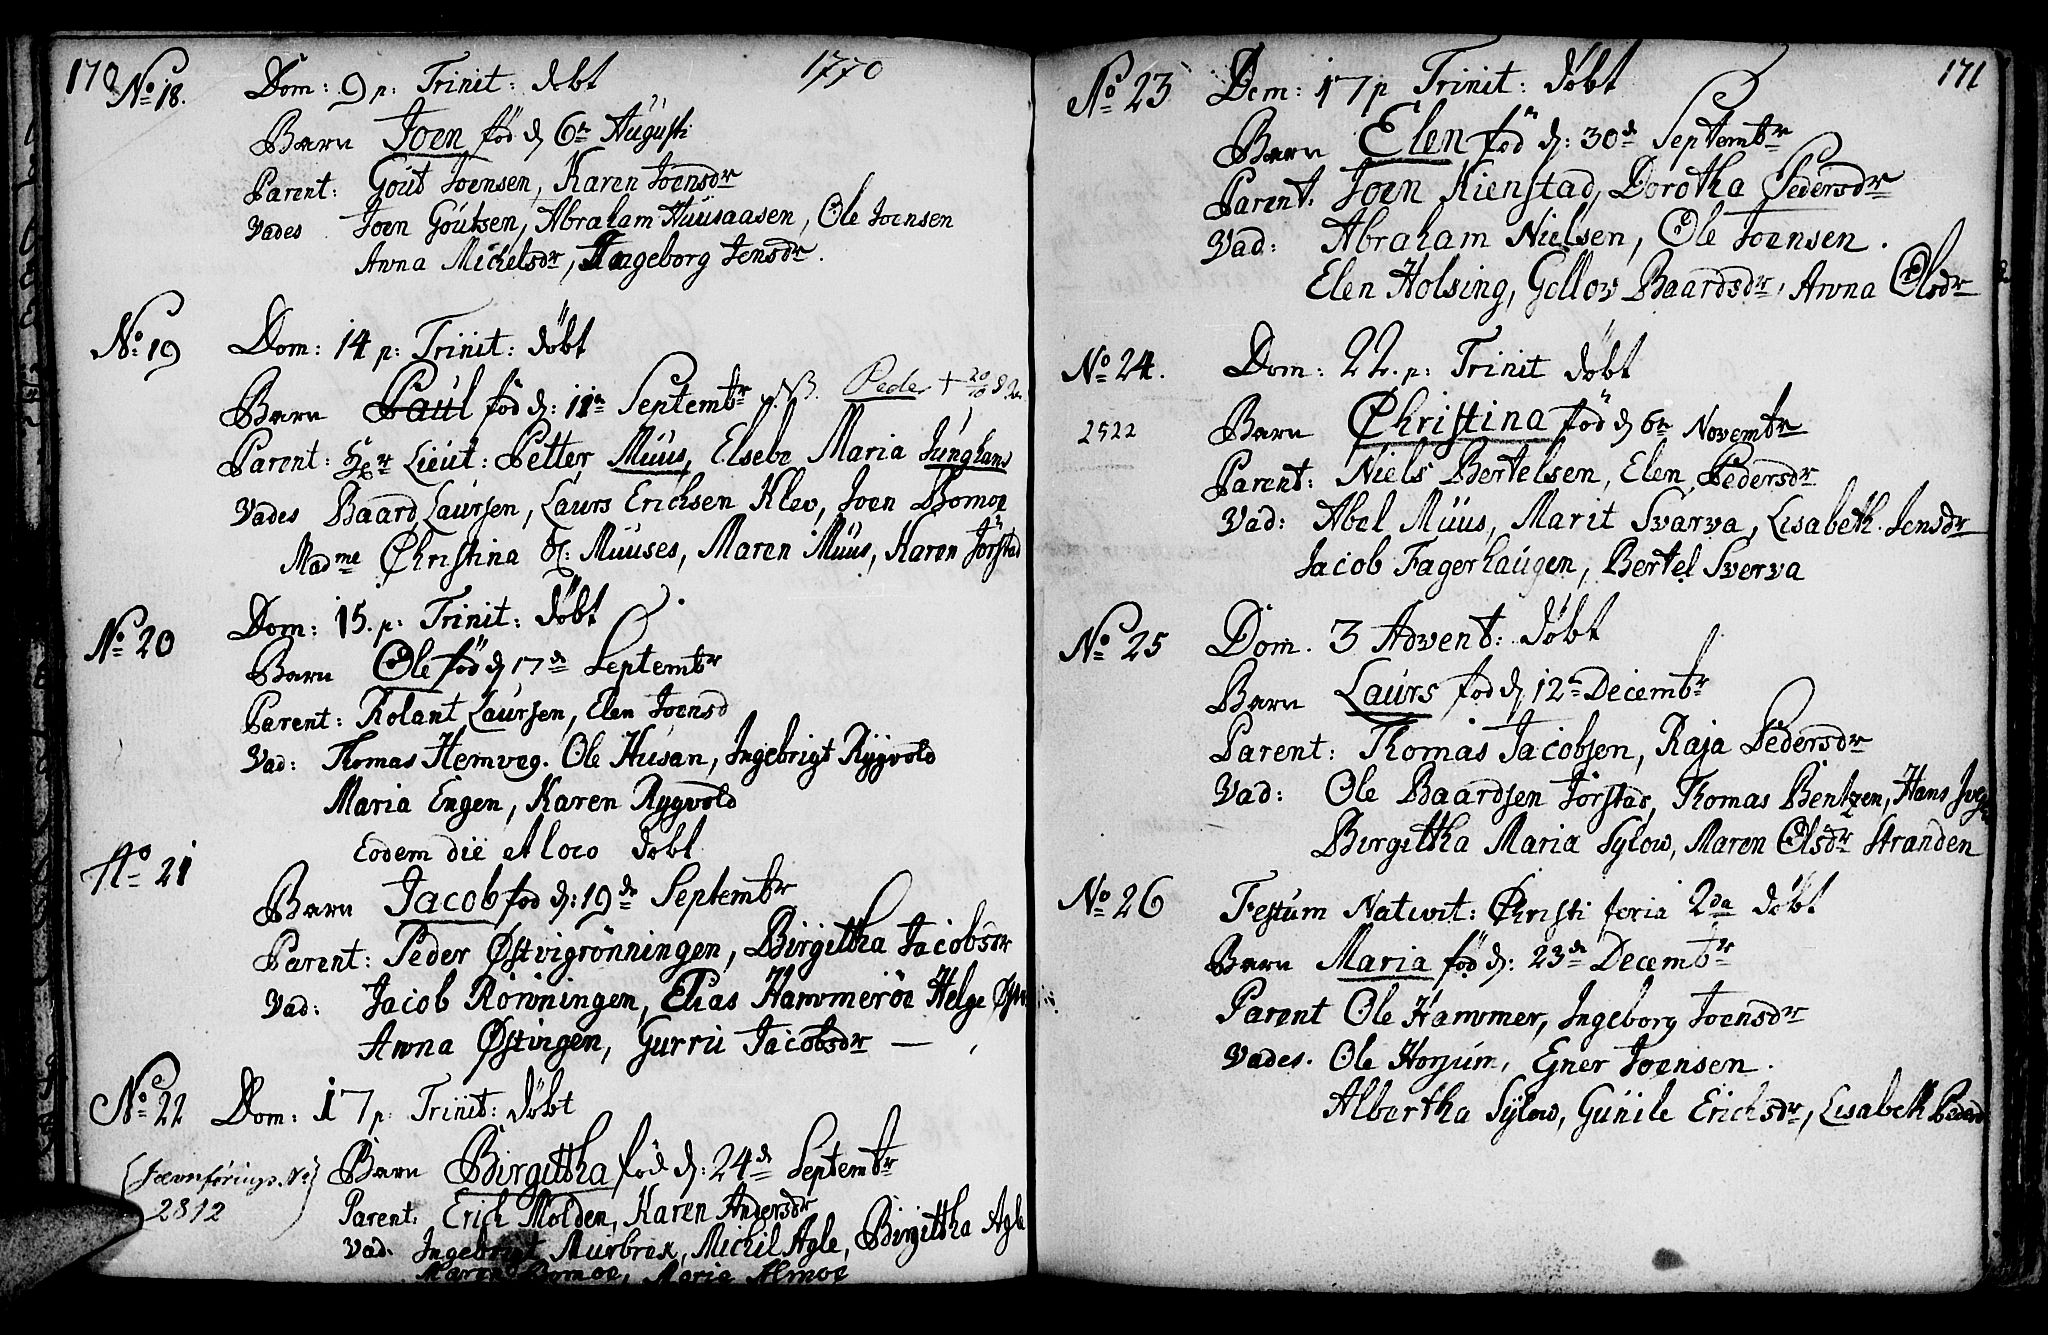 170 1770
No 18. Dom: 9 p: Trinit: døbt
Barn Joen fød d 6te Augusti
Parent: Gout Joensen, Karen Joensdr
Vades Joen Goutsen, Abraham Huusaasen, Ole Joensen
Anna Michelsdr, Ingeborg Jensdr.
No 19 Dom: 14 p: Trinit: døbt
Barn Paul fød d: 11te Septembr Peder + 20/10
Parent: Hr Lieut: Petter Muus, Elsebe Maria Junghans
Vades Baard Laursen, Laurs Erichsen Klev, Joen Bomoe
Madme Christina Muuses, Maren Muus, Karen Jørstad
No 20 Dom: 15. p: Trinit: døbt
Barn Ole fød d 17de Septembr
Parent: Rolant Laursen, Elen Joensd
Vad: Thomas Hemveg. Ole Husan, Ingebrigt Rygvold
Maria Engen, Karen Rygvold
No 21 Eodem die et loco døbt
Barn Jacob fød d: 19de Septembr
Parent: Peder Østvigrønningen, Birgittha Jacobsdr
Vad: Jacob Rønningen, Elias Hammerøe Helge
Anna Østvigen, Gurru Jacobsdr
No 22 Dom: 17 p: Trinit: døbt
(Jævnførings No) Barn Birgittha fød d: 24de Septembr
2812 Parent: Erich Molden, Karen Andersdr
Vad. Ingebrigt Murbrek, Michil Agle, Birgittha Agle
Maren Bomoe, Maria Almoe
171
No 23 Dom: 17 p Trinit: døbt
Barn Elen fød d: 30de Septembr
Parent: Joen Kienstad, Dorotha Pedersdr
Vad: Abraham Nielsen, Ole Joensen.
Elen Holsing, Gollov Baardsdr, Anna Olsdr
No 24. Dom: 22. p: Trinit døbt
2522 Barn Christina fød d 6te Novembr
Parent: Niels Bertelsen, Elen Pedersdr
Vad: Abel Muus, Marit Svarva, Lisabeth Jensdr
Jacob Fagerhaugen, Bertel Sverva
No 25 Dom. 3 Advent: døbt
Barn Laurs fød d 12te Decembr
Parent: Thomas Jacobsen, Raja Pedersdr
Vad: Ole Baardsen Jørstad, Thomas Bentzen, Hans
Birgittha Maria Sylow, Maren Olsdr Stranden
No 26 Festum Nativit: Christi feria 2da døbt
Barn Maria fød d: 23de Decembr
Parent Ole Hammer, Ingeborg Joensdr
Vades. Ole Horjum, Egner Joensen.
Albertha Sylow, Gunile Erichsdr, Lisabeth